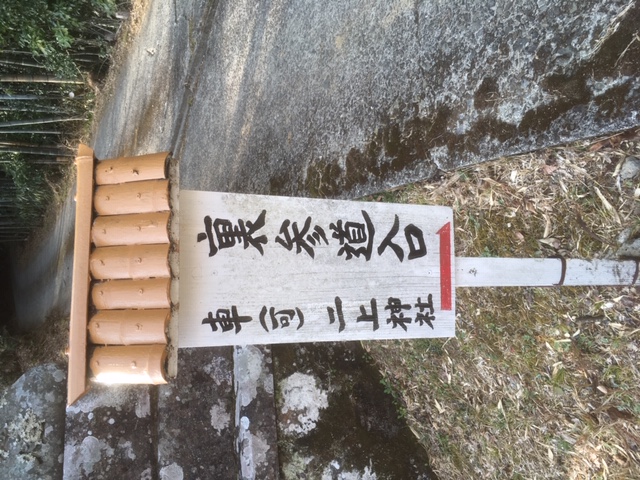 裏参道入口
車(可)二上神社